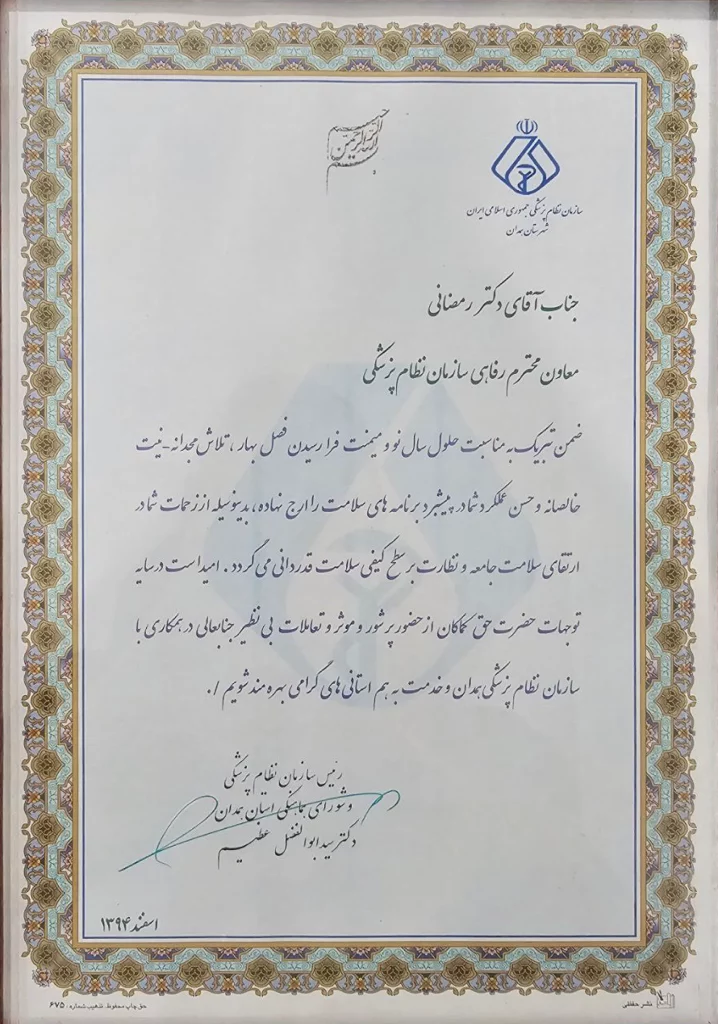 بسم الله الرحمن الرحیم
سازمان نظام پزشکی جمهوری اسلامی ایران
شهرستان همدان
جناب آقای دکتر رمضانی
معاون محترم رفاهی سازمان نظام پزشکی
ضمن تبریک به مناسبت حلول سال نو و میمنت فرا رسیدن فصل بهار ، تلاش مجدانه - نیت
خالصانه و حسن عملکرد شما در پیشبرد برنامه های سلامت را ارج نهاده ، بدینوسیله از زحمات شما در
ارتقای سلامت جامعه و نظارت بر سطح کیفی سلامت قدردانی می گردد . امید است در سایه
توجهات حضرت حق کماکان از حضور پرشور و موثر و تعاملات بی نظیر جنابعالی در همکاری با
سازمان نظام پزشکی همدان و خدمت به هم استانی های گرامی بهره مند شویم /.
رئیس سازمان نظام پزشکی
و شورای هماهنگی استان همدان
دکتر سید ابوالفضل عظیم
اسفند ۱۳۹۴
نشر حفظی
حق چاپ محفوظ. تذهیب شماره : ۶۷۵